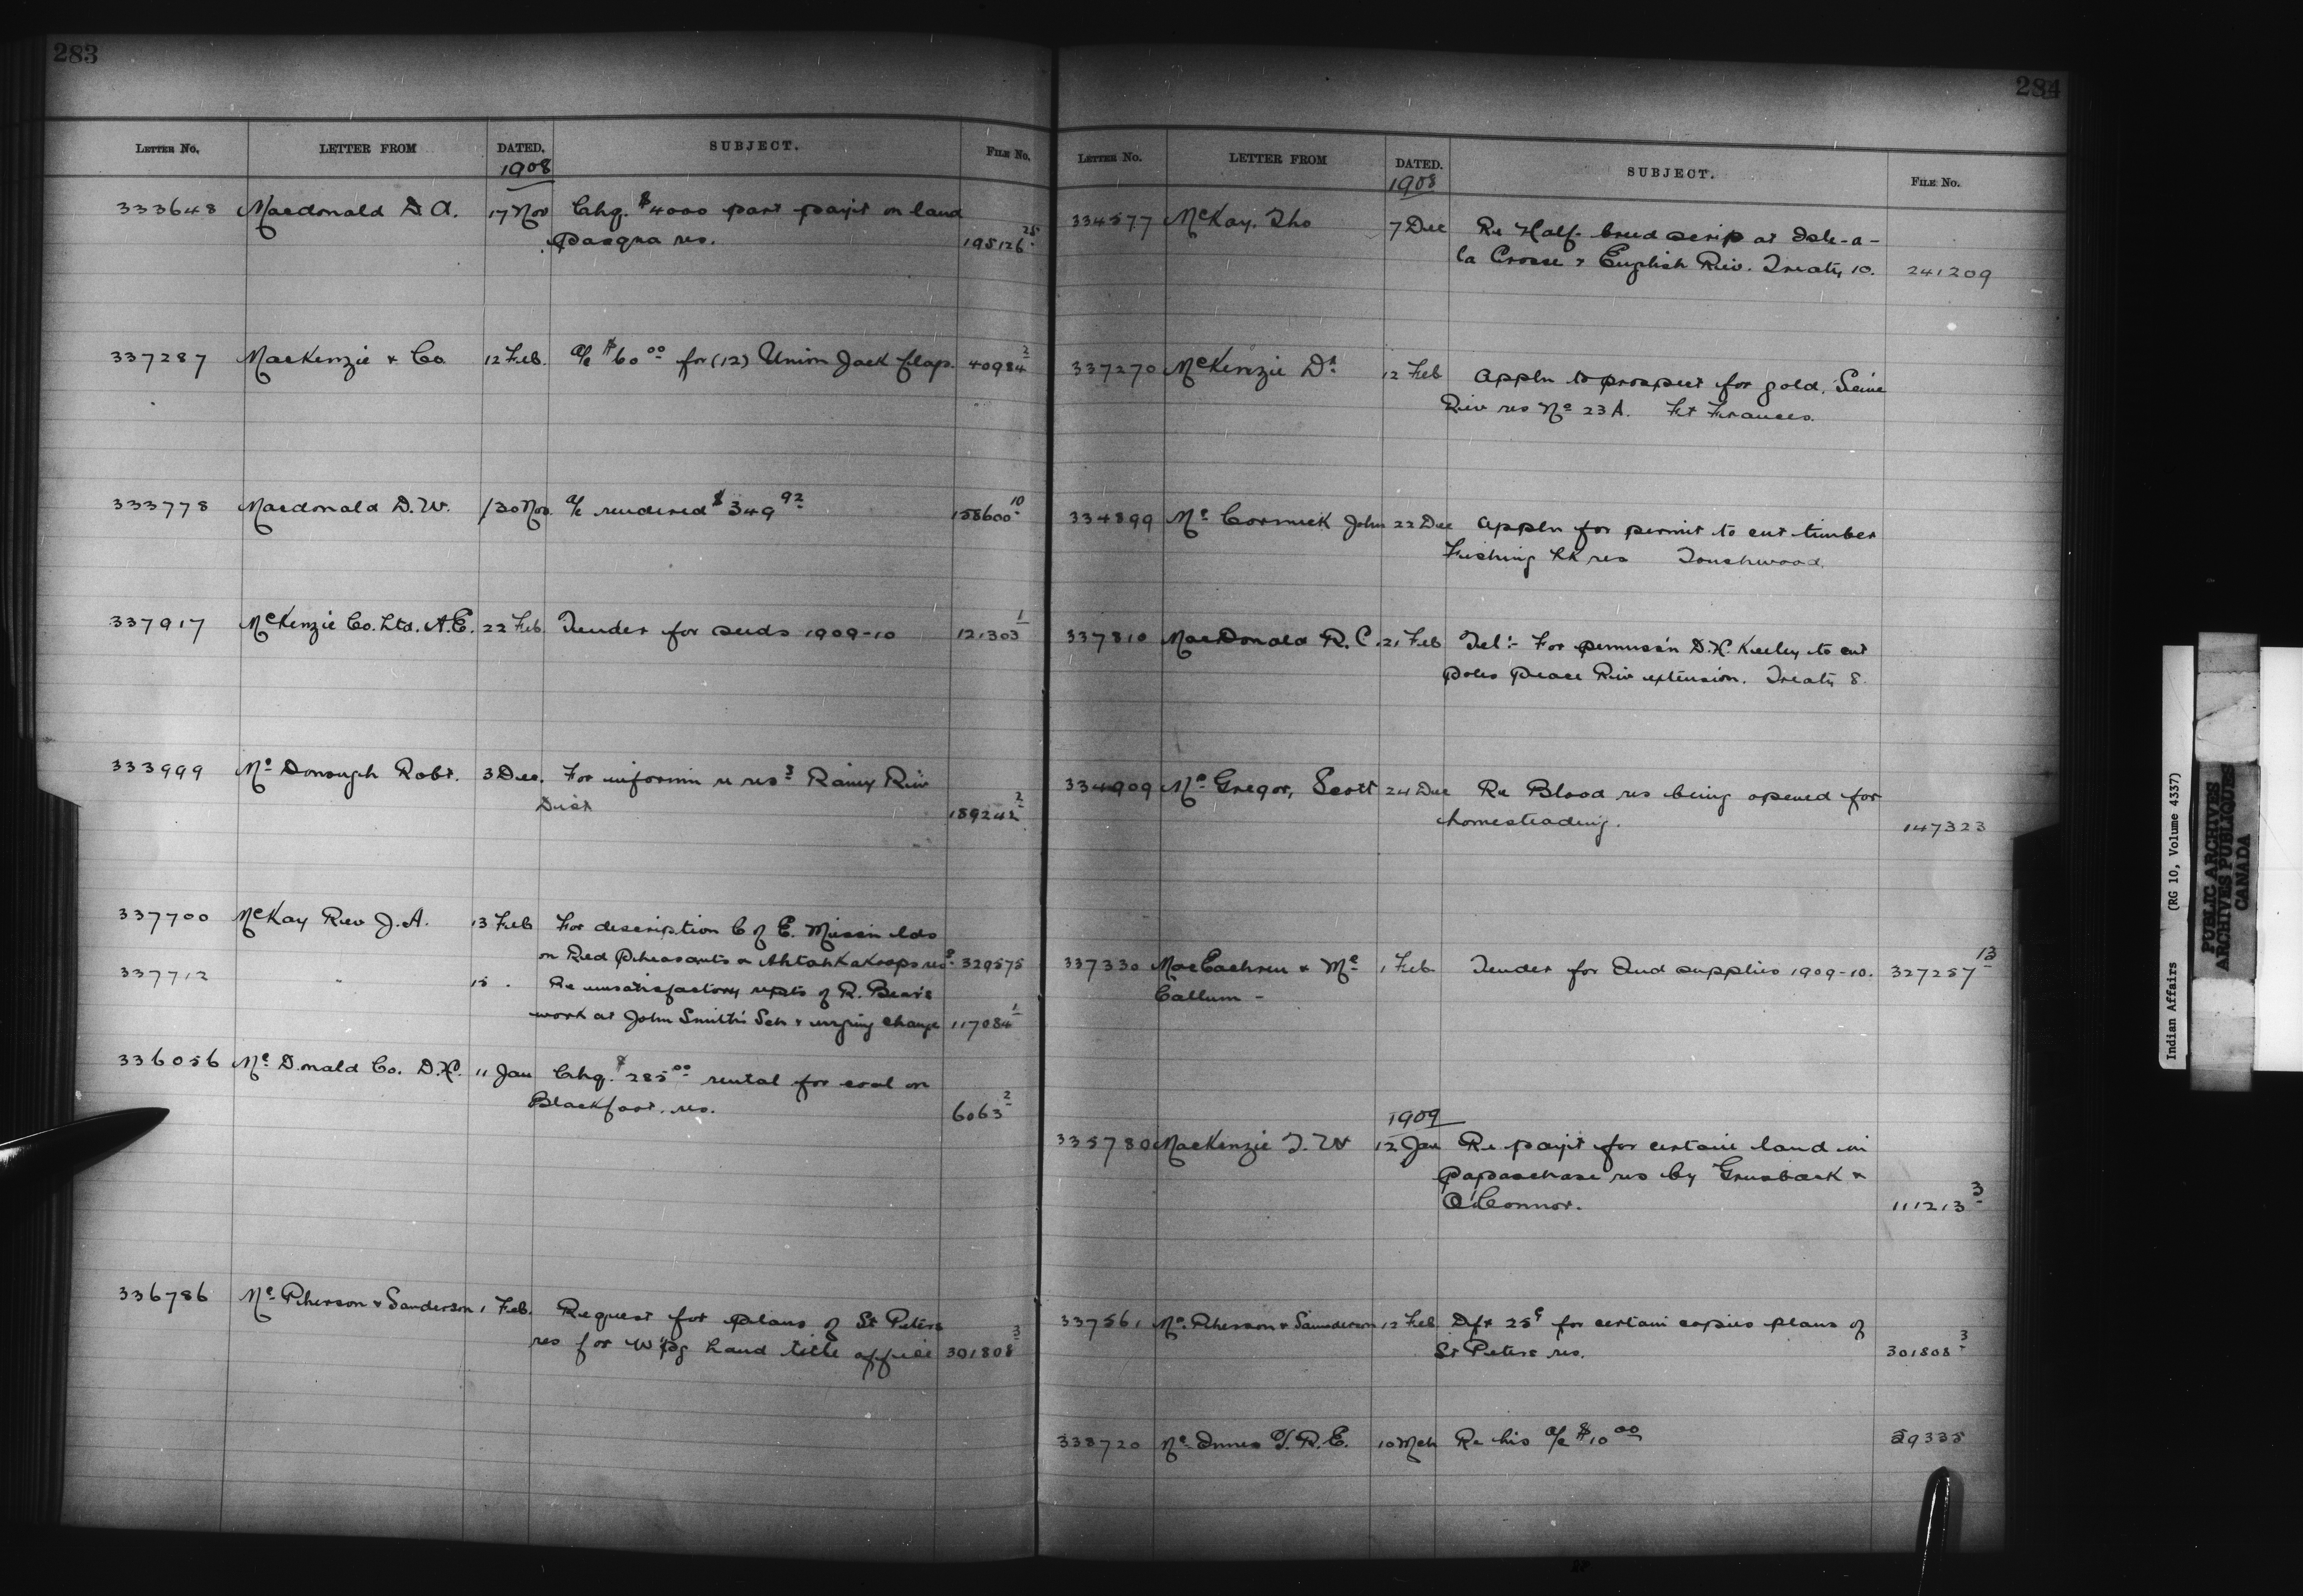 283
LETTER No. LETTER FROM DATED. SUBJECT. FILE No.
1908
333648 Macdonald D A. 17 Nov Chq. $4000 part paymt on land
Pasqua res. 195126 25
337287 MacKenzie & Co. 12 Feb. a/c $60 00 for (12) Union Jack flags. 40984 2
333778 Macdonald D.W. 30 Nov a/c rendered $349 92 158600 10
337917 McKenzie Co. Ltd. A.E. 22 Feb. Tender for seeds 1909-10 121303 1
333999 Mc Donough Robt. 3 Dec. For informn re ress Rainy Riv
Dist 189242 2
337700 McKay Rev J.A. 13 Feb For description C of E. Missn lds
on Red Pheasants & Ahtahkakoops res 329575
337712 " 15 . Re unsatisfactory repts of R. Bear's
work at John Smith's Sch & urging change 117084 1
336056 Mc Donald Co. D.H. 11 Jan Chq. $285 00 rental for coal on
Blackfoot. res. 6063 2
336786 Mc Pherson & Sanderson 1 Feb. Request for plans of St Peters
res for W'pg Land title office 301808 3
284
LETTER No. LETTER FROM DATED. SUBJECT. FILE No.
1908
334577 McKay, Tho 7 Dec Re Half-breed scrip at Isle-a-
la Crosse & English Riv. Treaty 10. 241209
337270 McKenzie Dr 12 Feb Appln to prospect for gold, Seine
Riv res No 23 A. Ft Frances.
334899 Mc Cormick John 22 Dec Appln for permit to cut timber
Fishing Lk res Touchwood.
337810 MacDonald R. C. 21 Feb Tel:- For permiss'n D.H. Keeley to cut
poles Peace Riv extension. Treaty 8.
334909 Mc Gregor, Scott 24 Dec Re Blood res being opened for
homesteading. 147323
337330 MacEachren & Mc 1 Feb. Tender for Ind supplies 1909-10. 327257 13
Callum -
1909
335780 MacKenzie T. W 12 Jan Re paymt for certain land in
Papaschase res by &
O'Connor. 111213 3
337561 Mc Pherson & Saunderson 12 Feb Dft 25¢ for certain copies plans of
St Peters res. 301808 3
338720 Mc Innes T.R.E. 10 Mch Re his a/c $10 00 59335
Indian Affairs (RG 10, Volume 4337)
PUBLIC ARCHIVES
ARCHIVES PUBLIQUES
CANADA